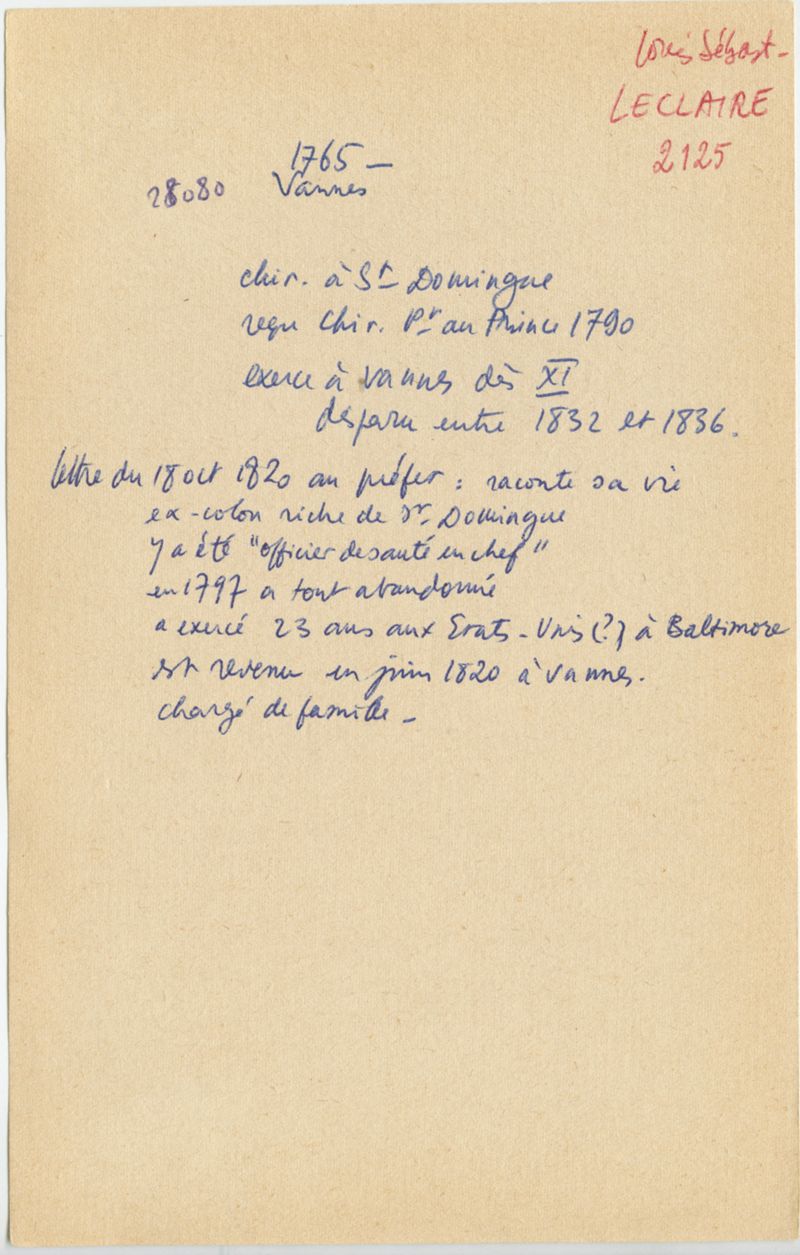 Louis Sébast-
LECLAIRE
2125
1765 -
28080 Vannes
chir. à St Domingue
reçu Chir. Pt au Prince 1790
exerce à Vannes dès XI
disparu entre 1832 et 1836.
lettre du 18 oct 1820 au préfet : raconte sa vie
ex-colon riche de St Domingue
y a été "officier de santé en chef"
en 1797 a tout abandonné
a exercé 23 ans aux Etats-Unis (?) à Baltimore
est revenu en juin 1820 à Vannes.
chargé de famille -